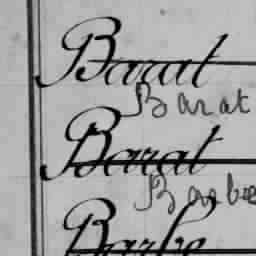 Barat
Barat
Barat
Barbe
Barbe